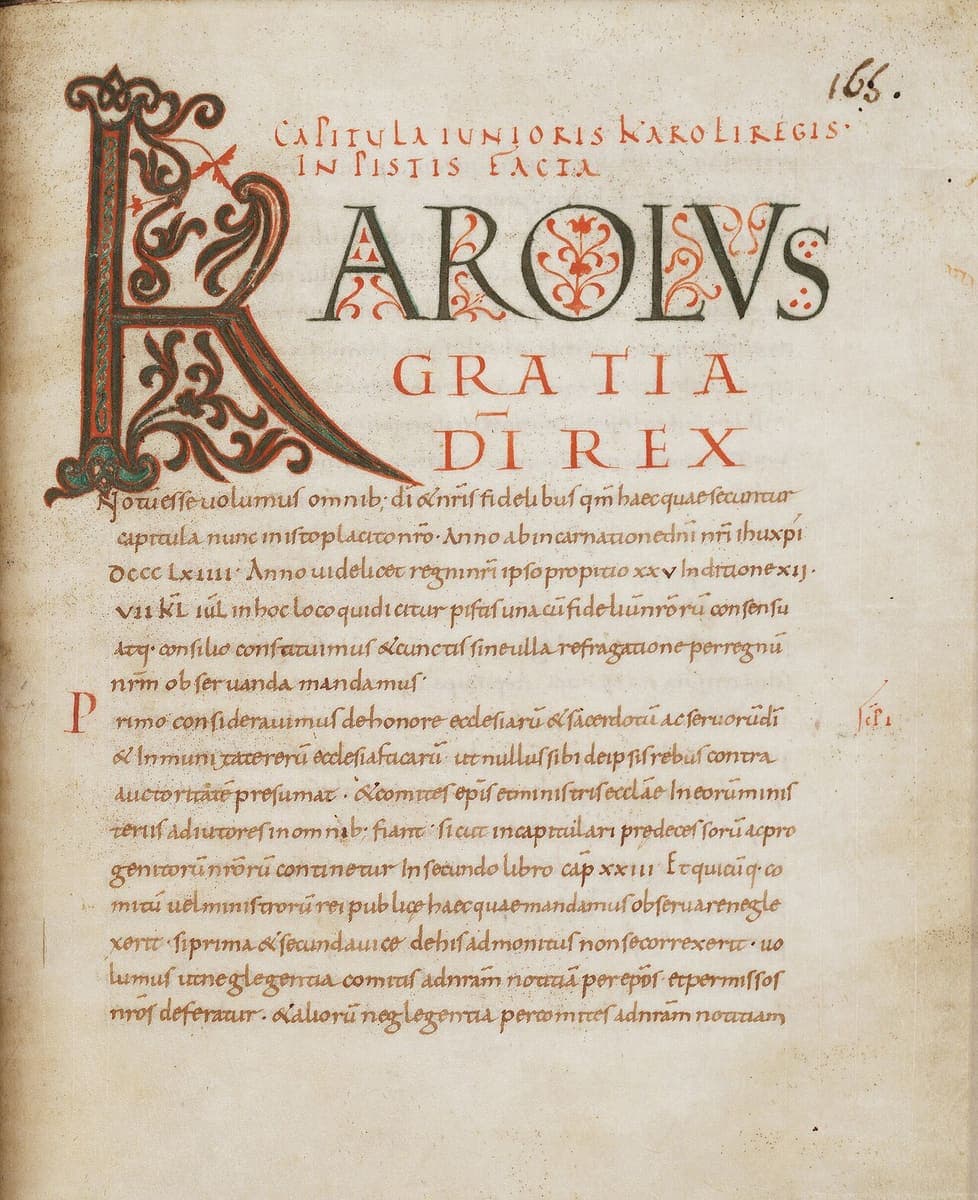 165.
CAPITULA IUNIORIS KAROLI REGIS·
IN PISTIS FACTA
KAROLVS
GRATIA
DĪ REX
Notū esse uolumus omnib; dī & nr̄is fidelibus qm̄ haec quae secuntur
capitula nunc in isto placito nr̄o· Anno ab incarnatione dn̄i nr̄i ihu xp̄i
DCCC LXIIII· Anno uidelicet regni nr̄i ipso propitio xxv Indictione xii·
VII KL̄ IUL̄ in hoc loco qui dicitur pistis una cū fideliū nr̄orū consensu
atq· consilio constituimus & cunctis sine ulla refragatione per regnū
nr̄m obseruanda mandamus·
Primo considerauimus de honore ecclesiarū & sacerdotū ac seruorū dī
& Inmunitate rerū ecclesiasticarū· ut nullus sibi de ipsis rebus contra
auctoritatē presumat· & comites ep̄is et ministris ecclāe In eorū minis
teriis adiutores in omnib; fiant· sicut in capitulari predecessorū ac pro
genitorū nr̄orū continetur In secundo libro cap̄ xxiii Et quicūq· co
mitū uel ministrorū rei publicę haec quae mandamus obseruare negle
xerit· si prima & secunda uice de his admonitus non se correxerit· uo
lumus ut neglegentia comitis ad nr̄am notitiā per ep̄os et per missos
nr̄os deferatur· & aliorū neglegentia per comites ad nr̄am notitiam